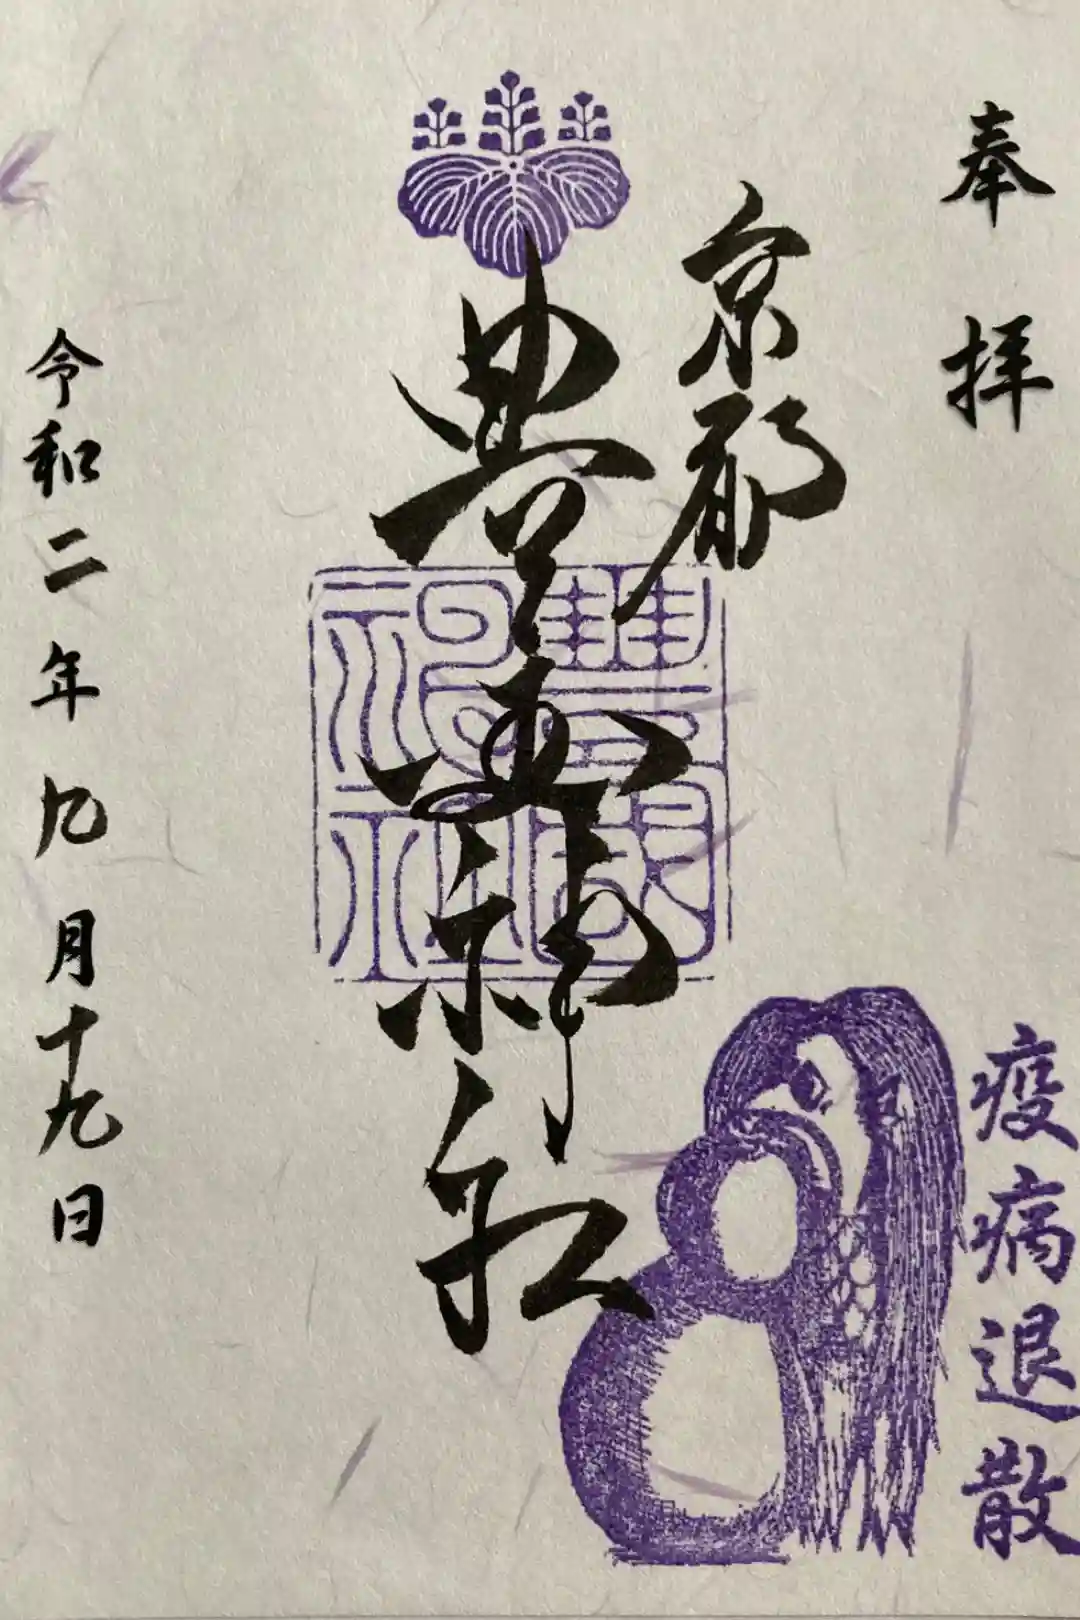 奉拝
京都
豊国神社
豐國神社
令和二年九月十九日
疫病退散